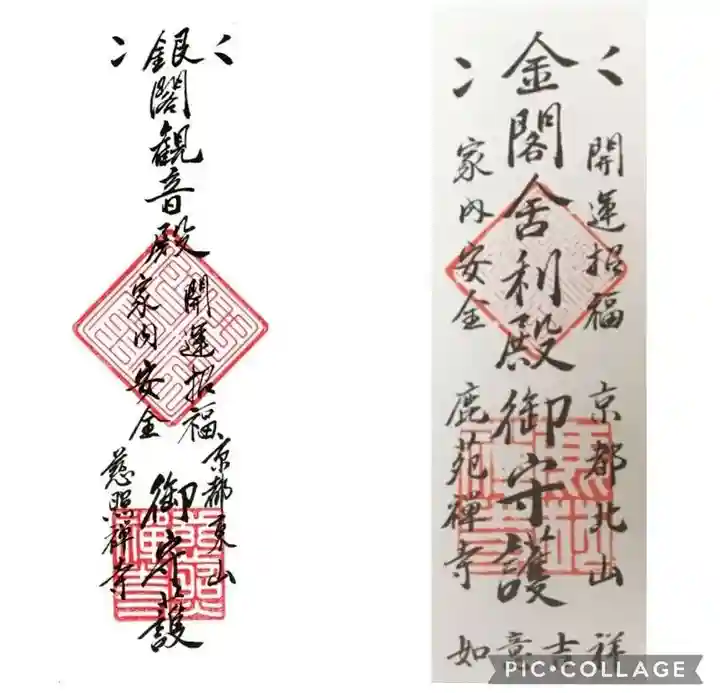 銀閣観音殿
開運招福
家内安全
御守護
京都東山
慈照禅寺
金閣舎利殿御守護
開運招福
家内安全
京都北山
鹿苑禅寺
如意吉祥
PIC•COLLAGE